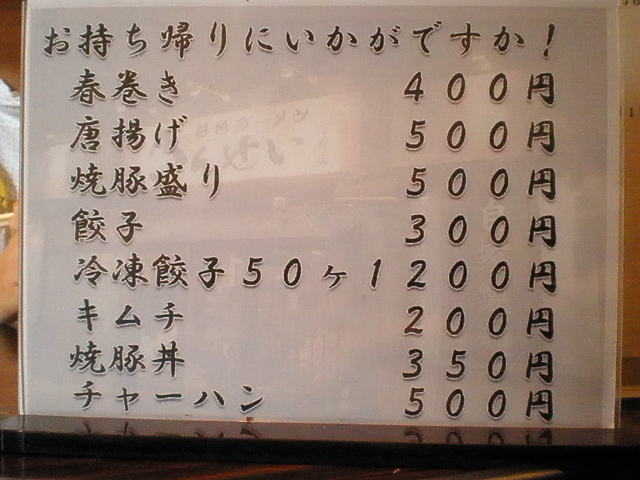 お持ち帰りにいかがですか！
春巻き 400円
唐揚げ 500円
焼豚盛り 500円
餃子 300円
冷凍餃子50ヶ1200円
キムチ 200円
焼豚丼 350円
チャーハン 500円